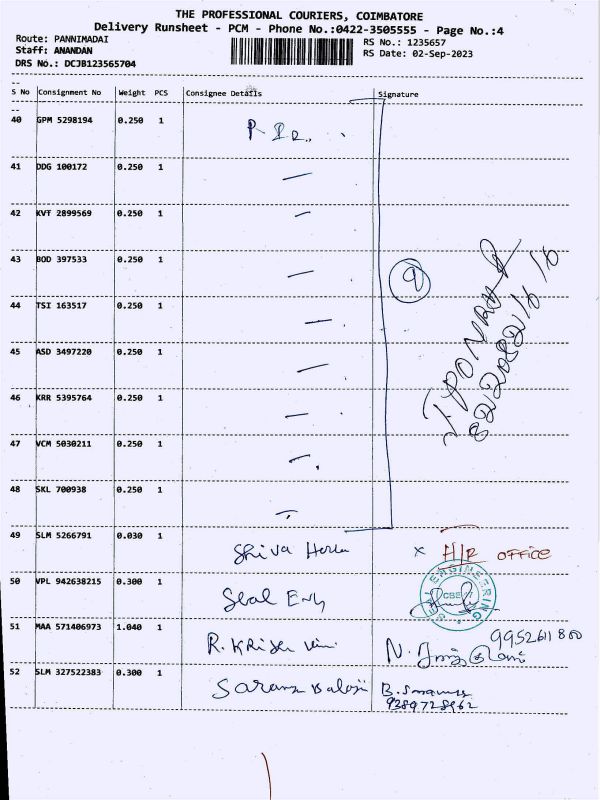 THE PROFESSIONAL COURIERS, COIMBATORE
Delivery Runsheet - PCM - Phone No.:0422-3505555 - Page No.:4
Route: PANNIMADAI
RS No.: 1235657
Staff: ANANDAN
RS Date: 02-Sep-2023
DRS No.: DCJB123565704
S No Consignment No Weight PCS Consignee Details Signature
40 GPM 5298194 0.250 1
41 DDG 100172 0.250 1
42 KVT 2899569 0.250 1
43 BOD 397533 0.250 1
9
44 TSI 163517 0.250 1
45 ASD 3497220 0.250 1
46 KRR 5395764 0.250 1
47 VCM 5030211 0.250 1
48 SKL 700938 0.250 1
49 SLM 5266791 0.030 1 Shiva x H/R OFFICE
50 VPL 942638215 0.300 1 Seal Eng
ENGINEERING
51 MAA 571406973 1.040 1 R. N.
9952611800
52 SLM 327522383 0.300 1 Saran Balaji B.
9389728962